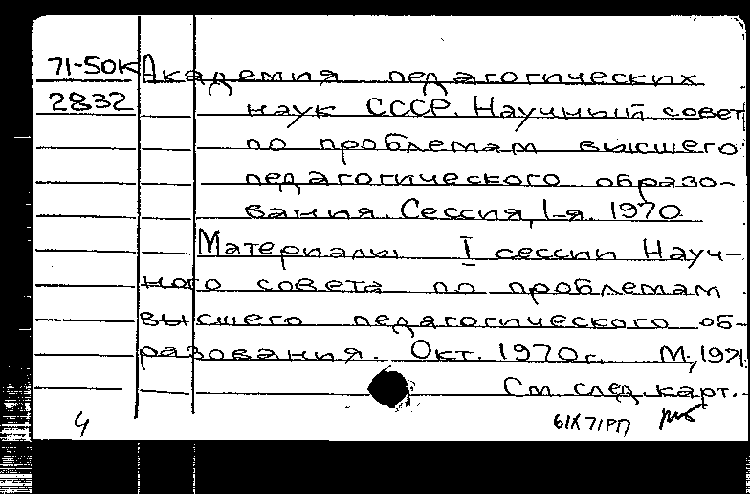 71-50К Академия педагогических
2832 наук СССР. Научный совет
по проблемам высшего
педагогического образо-
вания. Сессия, 1-я. 1970
Материалы I сессии Науч-
ного совета по проблемам
высшего педагогического об-
разования. Окт. 1970г. М., 1971.
См. след. карт.
4 61X71РП